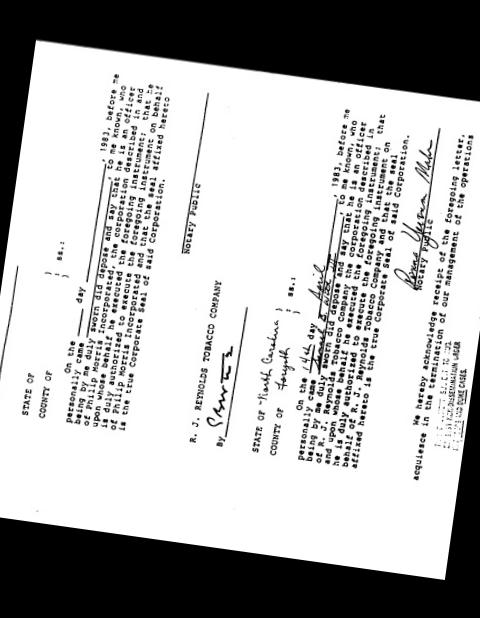 STATE OF )
) ss.:
COUNTY OF )
On the ____ day ____________, 1983, before me
personally came ____________, to me known, who
being by me duly sworn did depose and say that he is an officer
of Philip Morris Incorporated, the corporation described in and
upon whose behalf he executed the foregoing instrument; that he
is duly authorized to execute the foregoing instrument on behalf
of Philip Morris Incorporated and that the seal affixed hereto
is the true Corporate Seal of said Corporation.
Notary Public
R. J. REYNOLDS TOBACCO COMPANY
BY
STATE OF North Carolina )
) ss.:
COUNTY OF Forsyth )
On the 14th day April, 1983, before me
personally came to me known, who
being by me duly sworn did depose and say that he is an officer
of R. J. Reynolds Tobacco Company the corporation described in
and upon whose behalf he executed the foregoing instrument; that
he is duly authorized to execute the foregoing instrument on
behalf of R. J. Reynolds Tobacco Company and that the seal
affixed hereto is the true Corporate Seal of said Corporation.
Notary Public
We hereby acknowledge receipt of the foregoing letter,
acquiesce in the termination of our management of the operations